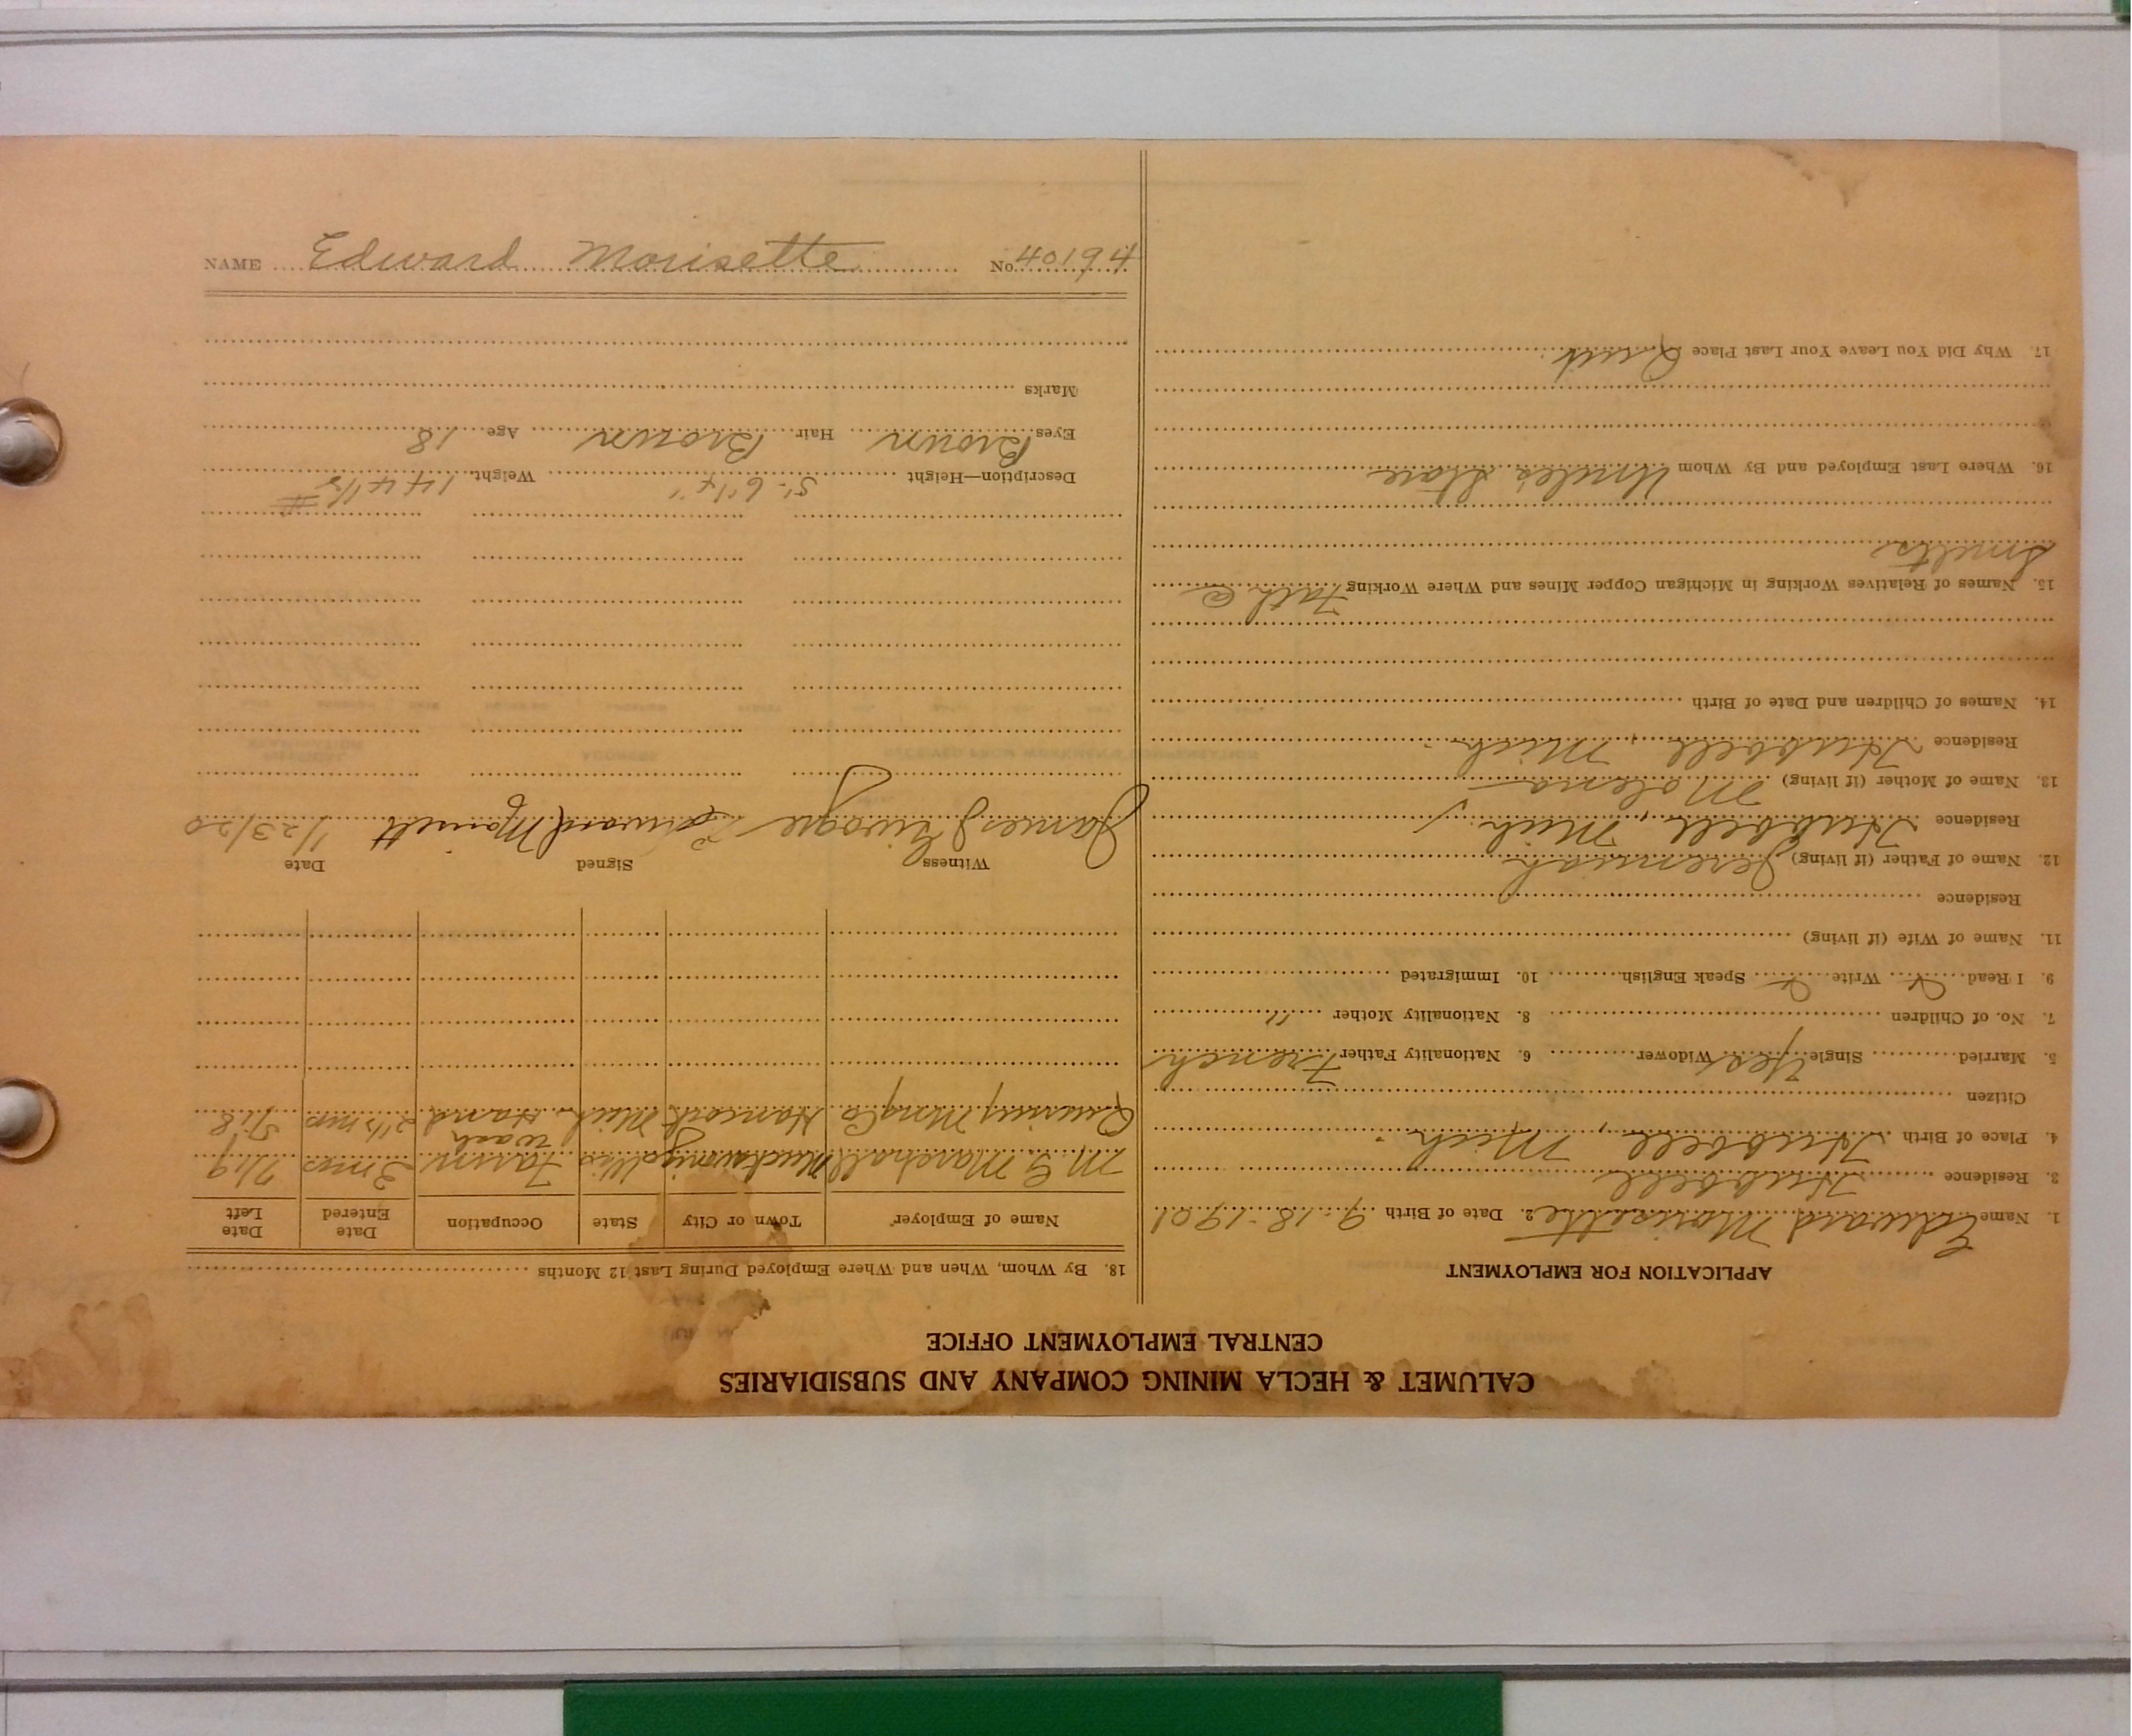 CALUMET & HECLA MINING COMPANY AND SUBSIDIARIES
CENTRAL EMPLOYMENT OFFICE
APPLICATION FOR EMPLOYMENT
1. Name Edward Morisette 2. Date of Birth 9-18-1901
3. Residence Hubbell
4. Place of Birth Hubbell, Mich.
Citizen
5. Married Single Yes Widower 6. Nationality Father French
7. No. of Children 8. Nationality Mother "
9. I Read Write Speak English 10. Immigrated
11. Name of Wife (if living)
Residence
12. Name of Father (if living) Jeremiah
Residence Hubbell, Mich
13. Name of Mother (if living)
Residence Hubbell, Mich.
14. Names of Children and Date of Birth
15. Names of Relatives Working in Michigan Copper Mines and Where Working Fath. @
Smelts
16. Where Last Employed and By Whom Uncle's Store
17. Why Did You Leave Your Last Place Quit.
18. By Whom, When and Where Employed During Last 12 Months
Name of Employer Town or City State Occupation Date Entered Date Left
M G Marshall Wis Farm Work 3 mos 7/19
Quincy Mng Co Hancock Mich Hand 2 1/2 mos
Witness Signed Date
James Edward Morisett 1/23/20
Description—Height 5'-6 1/4" Weight 144 1/2 #
Eyes Brown Hair Brown Age 18
Marks
NAME Edward Morisette No. 40194